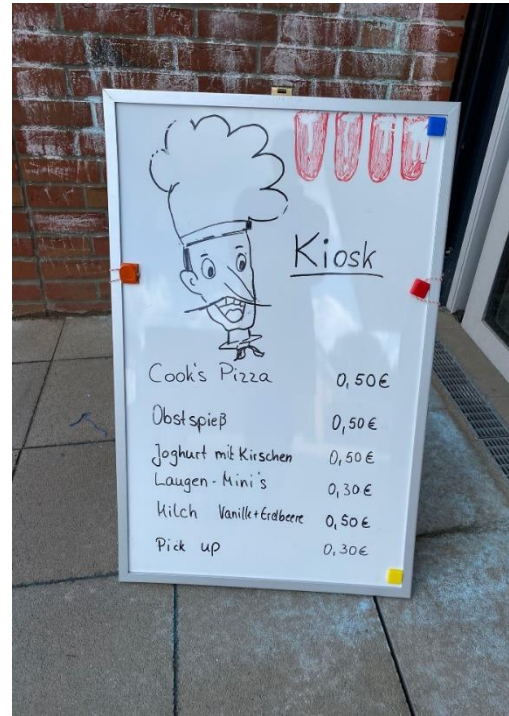 Kiosk
Cook's Pizza 0,50€
Obstspieß 0,50€
Joghurt mit Kirschen 0,50€
Laugen-Mini's 0,30€
Milch Vanille+Erdbeere 0,50€
Pick up 0,30€